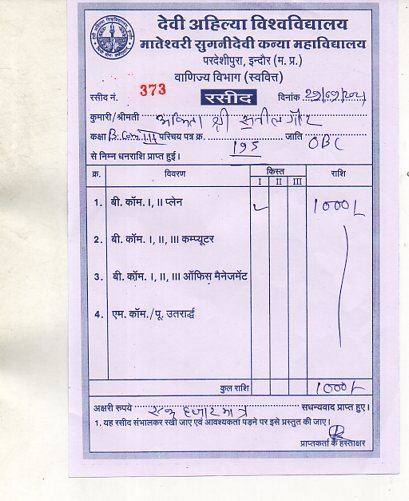 देवी अहिल्या विश्वविद्यालय
मातेश्वरी सुगनीदेवी कन्या महाविद्यालय
परदेशीपुरा, इन्दौर (म. प्र.)
वाणिज्य विभाग (स्ववित्त)
रसीद नं. 373 रसीद दिनांक
कुमारी/श्रीमती श्री सुनील गौर
कक्षा B.Com III परिचय पत्र क्र. 195 जाति OBC
से निम्न धनराशि प्राप्त हुई।
क्र. विवरण किस्त राशि
I II III
1. बी. कॉम. I, II प्लेन ✓ 1000/-
2. बी. कॉम. I, II, III कम्प्यूटर
3. बी. कॉम. I, II, III ऑफिस मैनेजमेंट
4. एम. कॉम./पू. उतरार्द्ध
कुल राशि 1000/-
अक्षरी रूपये एक हजार मात्र सधन्यवाद प्राप्त हुए।
1. यह रसीद संभालकर रखी जाए एवं आवश्यकता पड़ने पर इसे प्रस्तुत की जाए।
प्राप्तकर्ता के हस्ताक्षर